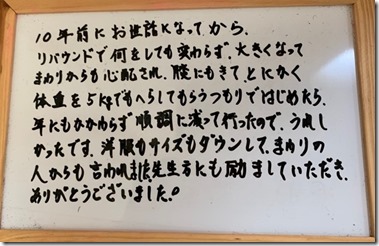 10年前にお世話になってから、
リバウンドで何をしても変わらず、大きくなって
まわりからも心配され、膝にもきてとにかく
体重を5kgでもへらしてもらうつもりではじめたら、
年にもかかわらず順調に減って行ったので、うれし
かったです。洋服もサイズもダウンして、まわりの
人からも言われました。先生方にも励ましていただき、
ありがとうございました。